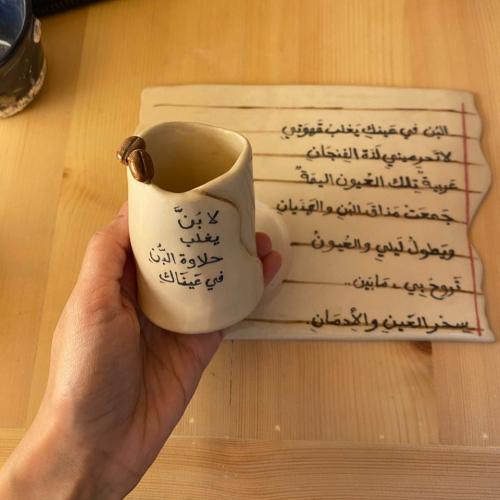 لا بُنَّ
يغلب
حلاوة البُن
في عَيناكِ
البُن في عَينكِ يَغلبُ قَهوَتي
لا تَحرميني لَذة الفِنجَان
عَربية تِلك العُيون اليمَة
جَمعَتْ مَذاق البُن والهَذيان
ويَطولُ لَيلي والعُيونُ
تَروحُ بي، مَابَين..
سِحر العَين والأدمَان.